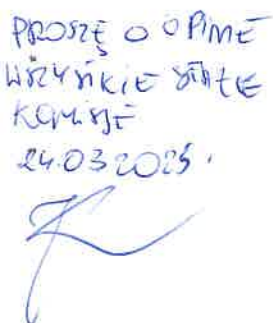 PROSZĘ O OPINIĘ
WSZYSTKIE STAŁE
KOMISJE
24.03.2025.